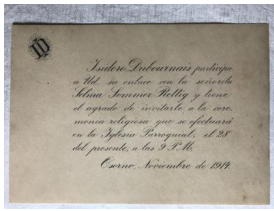 ID
Isidoro Dubournais participa
a Ud. su enlace con la señorita
Selma Sommer Rettig y tiene
el agrado de invitarle a la cere-
monia religiosa que se efectuará
en la Iglesia Parroquial, el 28
del presente, a las 9 P.M.
Osorno, Noviembre de 1914.